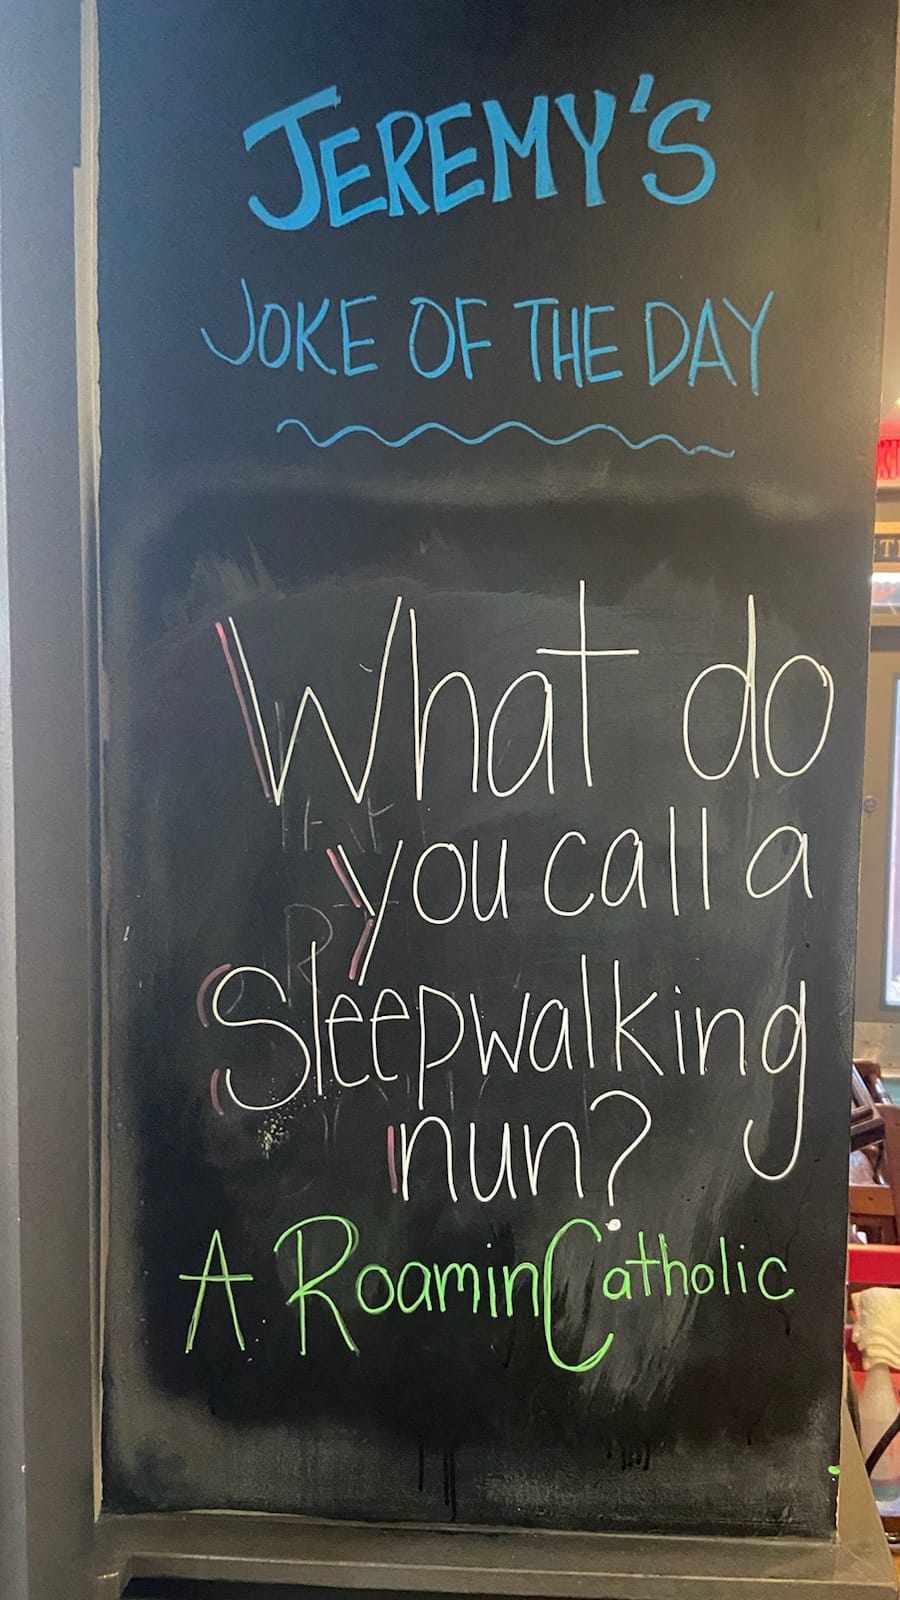 JEREMY'S
JOKE OF THE DAY
What do
you call a
Sleepwalking
nun?
A Roamin Catholic